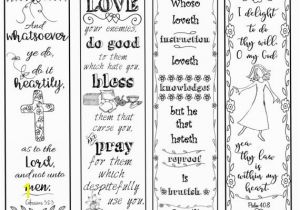 And
whatsoever
ye do,
do it
heartily,
as to the
Lord,
and not unto
men.
LOVE
your enemies,
do good
to them
which hate you,
bless
them that
curse you,
and
pray
for them
which
despitefully
use you.
Whoso
loveth
instruction
loveth
knowledge:
but he
that
hateth
reproof
is
brutish.
I delight to
do thy
will O my
God:
yea
thy law
is within
my heart.
Psalm 40:8